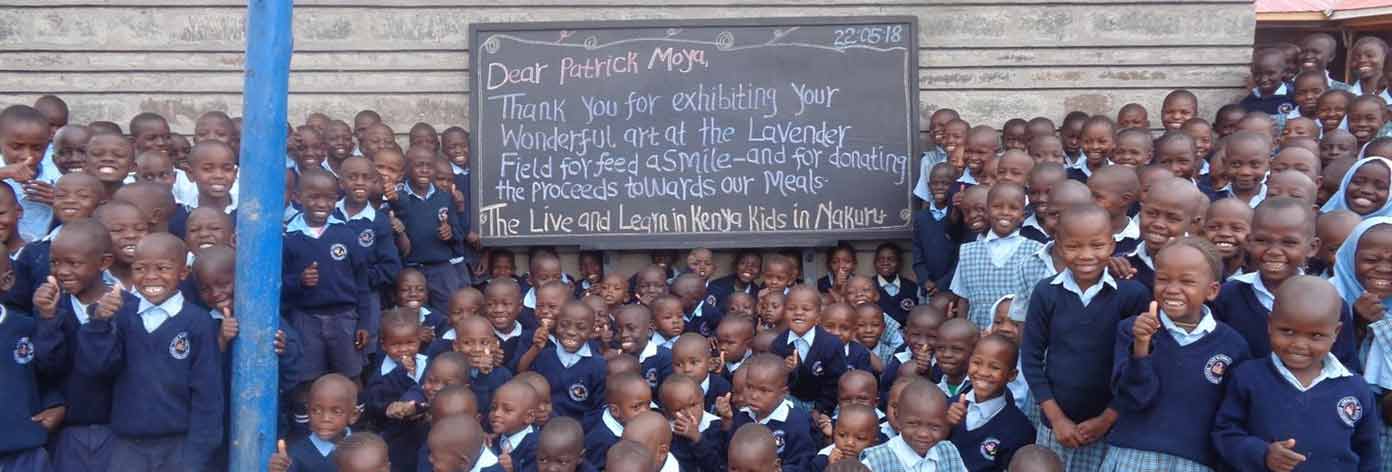 22·05·18
Dear Patrick Moya,
Thank you for exhibiting your
Wonderful art at the Lavender
Field for feed a Smile-and for donating
the proceeds towards our Meals-
The Live and Learn in Kenya Kids in Nakuru